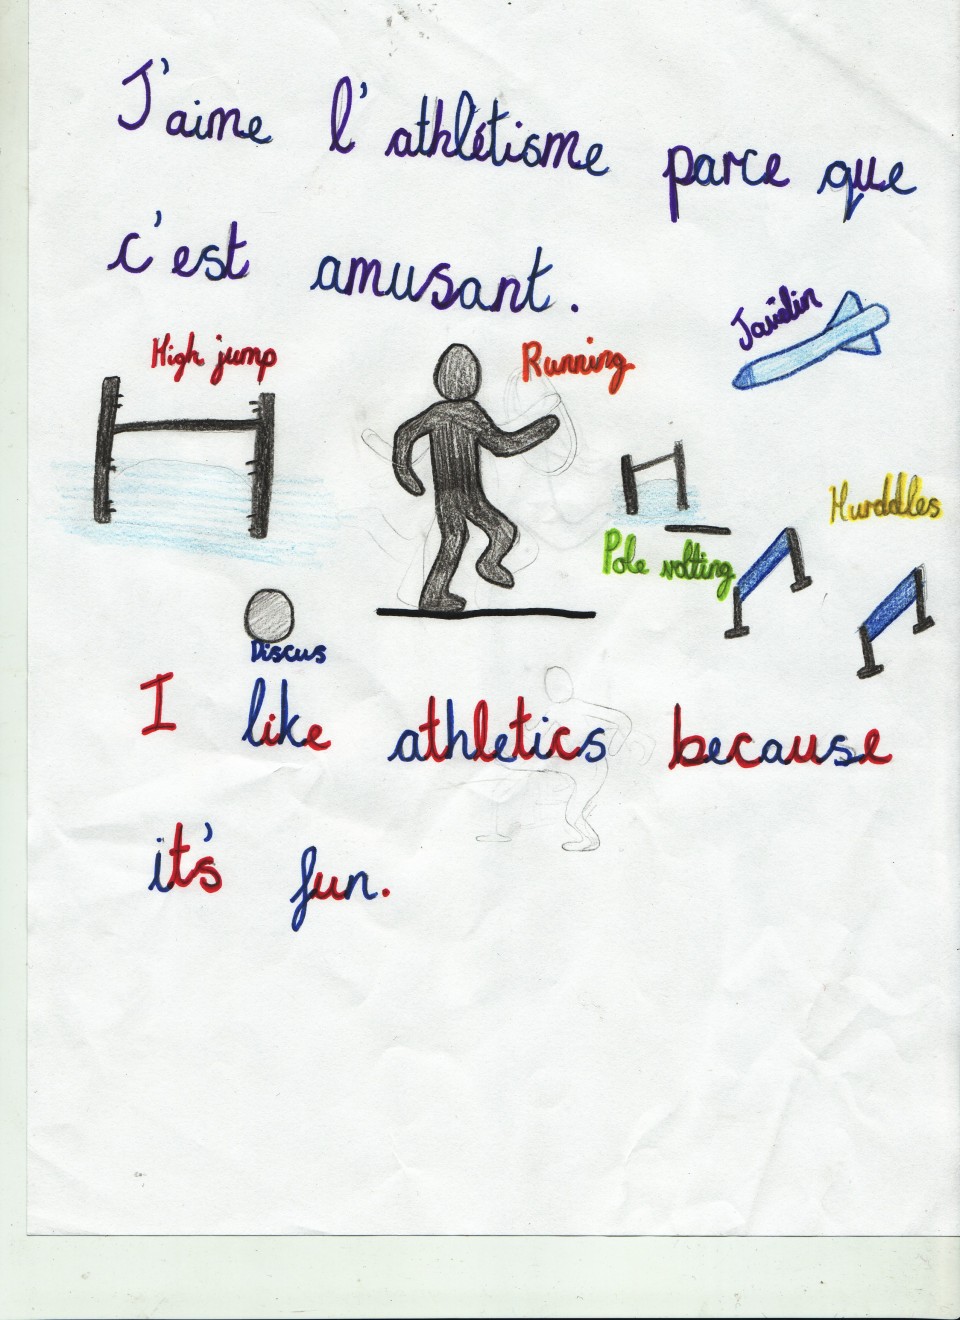 J'aime l'athlétisme parce que
c'est amusant.
High jump
Running
Javelin
Hurddles
Pole volting
Discus
I like athletics because
it's fun.